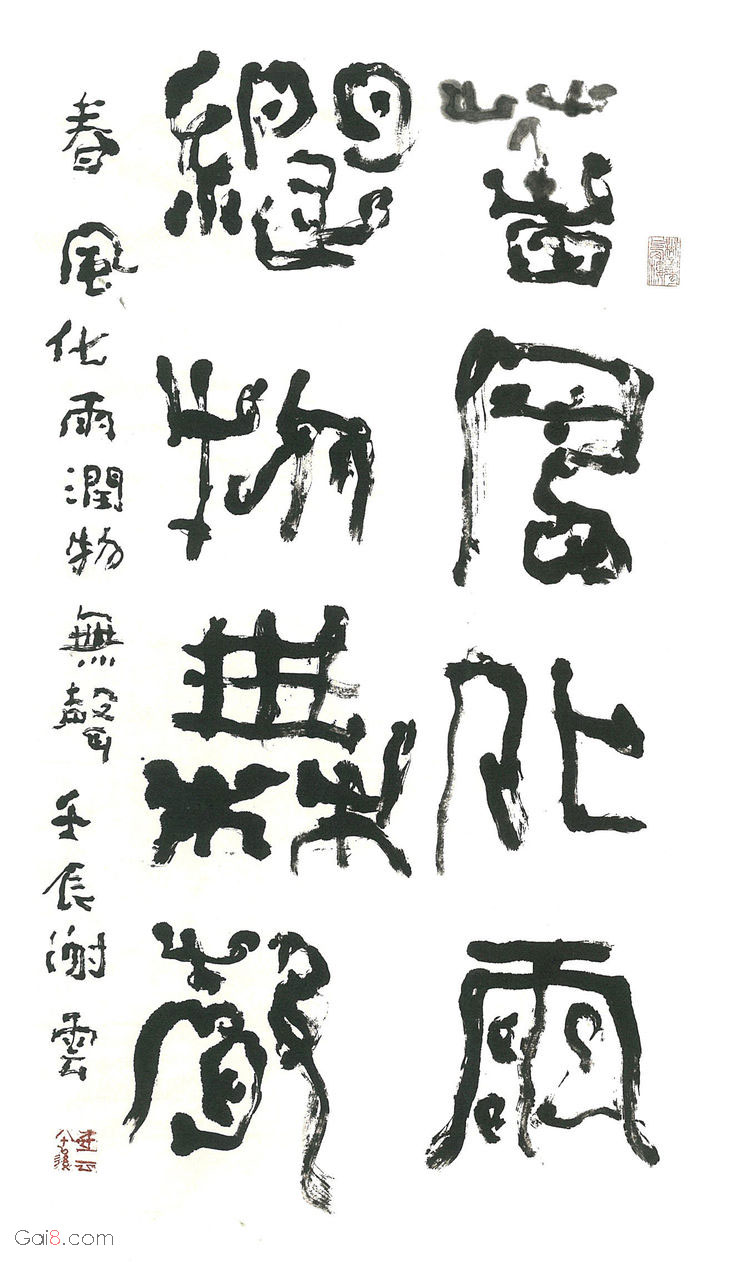 春風化雨
潤物無聲
春風化雨潤物無聲壬辰謝雲
Gai8.com